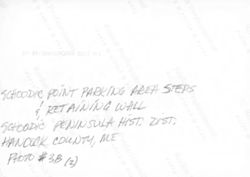 SCHOODIC POINT PARKING AREA STEPS
& RETAINING WALL
SCHOODIC PENINSULA HIST. DIST.
HANCOCK COUNTY, ME
PHOTO # 3B (2)